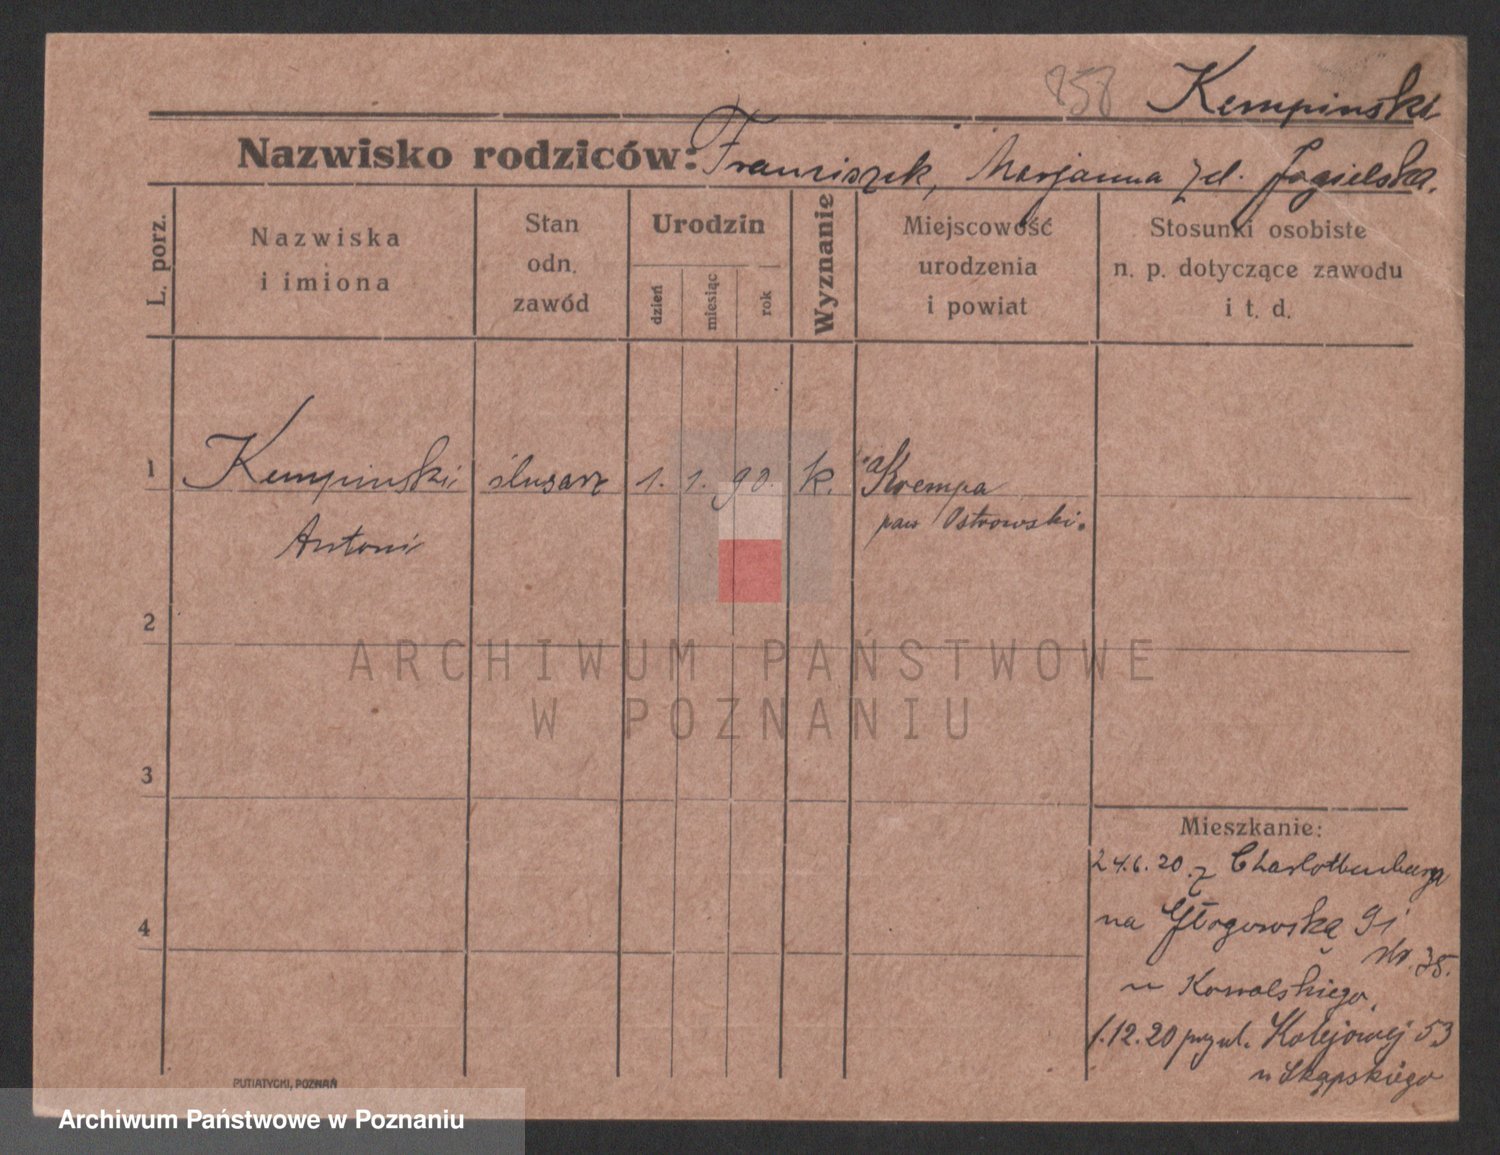 858 Kempinski
Nazwisko rodziców: Franciszek, Marjanna zd. Jagielska.
L. porz.
Nazwiska
i imiona
Stan
odn.
zawód
Urodzin
dzień
miesiąc
rok
Wyznanie
Miejscowość
urodzenia
i powiat
Stosunki osobiste
n. p. dotyczące zawodu
i t. d.
1 Kempinski ślusarz 1. 1. 90. k. Krempa
Antoni paw Ostrowski.
2
3
4
Mieszkanie:
24.6.20. z Charlottenburga
na Głogowską 91
35.
u Kowalskiego,
1.12.20 przy ul. Kolejowej 53
u Skąpskiego
PUTIATYCKI, POZNAŃ
ARCHIWUM PAŃSTWOWE
W POZNANIU
Archiwum Państwowe w Poznaniu